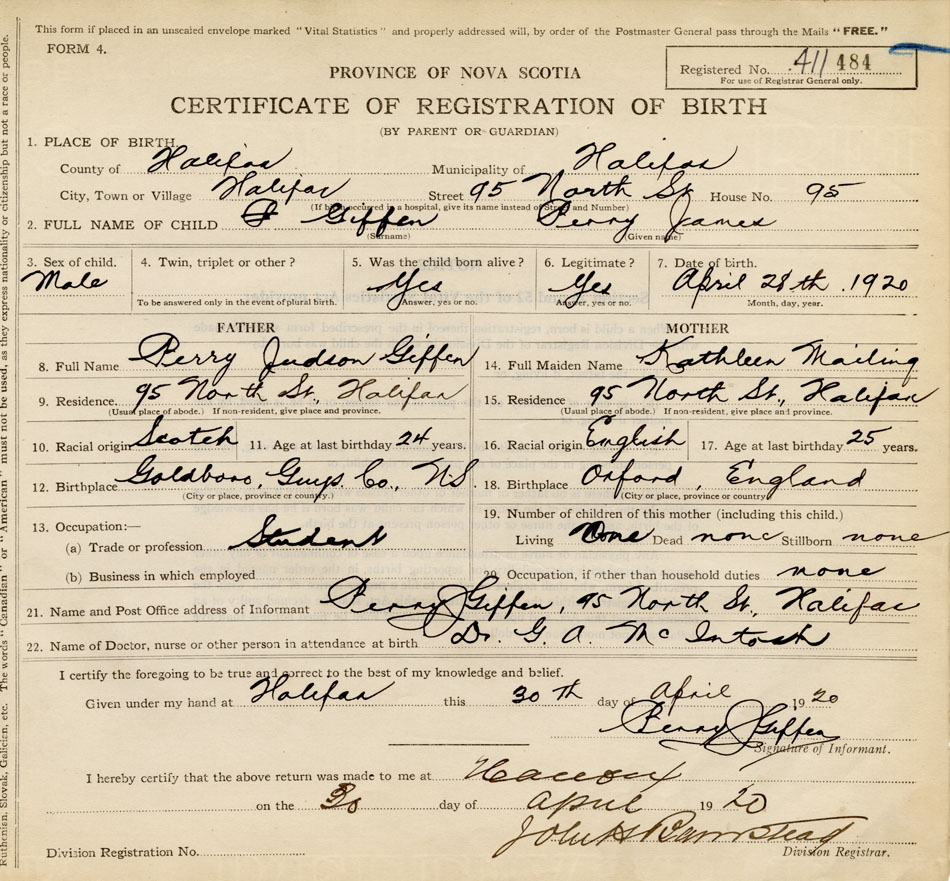 This form if placed in an unsealed envelope marked "Vital Statistics" and properly addressed will, by order of the Postmaster General pass through the Mails "FREE."
FORM 4.
Registered No. 411 484
For use of Registrar General only.
PROVINCE OF NOVA SCOTIA
CERTIFICATE OF REGISTRATION OF BIRTH
(BY PARENT OR GUARDIAN)
1. PLACE OF BIRTH.
County of Halifax Municipality of Halifax
City, Town or Village Halifax Street 95 North St. House No. 95
(If birth occurred in a hospital, give its name instead of Street and Number)
2. FULL NAME OF CHILD Giffen Perry James
(Surname) (Given name)
3. Sex of child. 4. Twin, triplet or other? 5. Was the child born alive? 6. Legitimate? 7. Date of birth.
Male Yes Yes April 28th 1920
To be answered only in the event of plural birth. Answer, yes or no. Answer, yes or no. Month, day, year.
FATHER MOTHER
8. Full Name Perry Judson Giffen 14. Full Maiden Name Kathleen Mailing
9. Residence 95 North St., Halifax 15. Residence 95 North St., Halifax
(Usual place of abode.) If non-resident, give place and province. (Usual place of abode.) If non-resident, give place and province.
10. Racial origin Scotch 11. Age at last birthday 24 years. 16. Racial origin English 17. Age at last birthday 25 years.
12. Birthplace Goldboro, Guys. Co., N.S. 18. Birthplace Oxford, England
(City or place, province or country) (City or place, province or country)
19. Number of children of this mother (including this child.)
13. Occupation:—
(a) Trade or profession Student Living One Dead none Stillborn none
(b) Business in which employed 20. Occupation, if other than household duties none
21. Name and Post Office address of Informant Perry J Giffen, 95 North St., Halifax
22. Name of Doctor, nurse or other person in attendance at birth Dr. G. A. McIntosh
I certify the foregoing to be true and correct to the best of my knowledge and belief.
Given under my hand at Halifax this 30th day of April 1920
Perry J Giffen
Signature of Informant.
I hereby certify that the above return was made to me at
on the 30 day of April 1920
John H Barnstead
Division Registration No. Division Registrar.
Ruthenian, Slovak, Galicien, etc. The words "Canadian" or "American" must not be used, as they express nationality or citizenship but not a race or people.